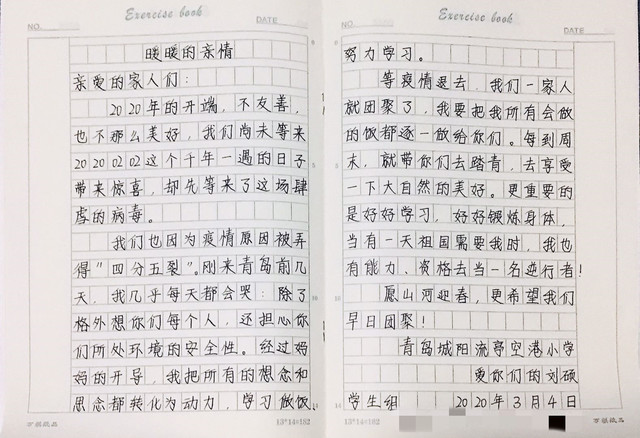 Exercise book
NO.
DATE
暖暖的亲情
亲爱的家人们:
2020年的开端,不友善,
也不那么美好,我们尚未等来
20200202这个千年一遇的日子
带来惊喜,却先等来了这场肆
虐的病毒。
我们也因为疫情原因被弄
得"四分五裂"。刚来青岛前几
天,我几乎每天都会哭:除了
格外想你们每个人,还担心你
们所处环境的安全性。经过妈
妈的开导,我把所有的想念和
思念都转化为动力,学习做饭、
13*14=182
Exercise book
NO.
DATE
努力学习。
等疫情退去,我们一家人
就团聚了,我要把我所有会做
的饭都逐一做给你们。每到周
末,就带你们去踏青,去享受
一下大自然的美好。更重要的
是好好学习,好好锻炼身体,
当有一天祖国需要我时,我也
有能力、资格去当一名逆行者!
愿山河迎春,更希望我们
早日团聚!
青岛城阳流亭空港小学
爱你们的刘硕
学生组 2020年3月4日
13*14=182